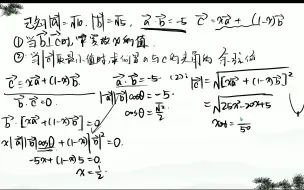 已知|a⃗|=√10, |b⃗|=√5, a⃗·b⃗=-5 c⃗=xa⃗+(1-x)b⃗
①当b⃗⊥c⃗时,实数x的值
②当|c⃗|取最小值时,求向量a与c的夹角的余弦值
c⃗=xa⃗+(1-x)b⃗
b⃗·c⃗=0.
b⃗·[xa⃗+(1-x)b⃗]=0
x|a⃗||b⃗|cosθ+(1-x)|b⃗|²=0.
-5x+(1-x)5=0.
x=1/2.
a⃗·b⃗=-5
|a⃗||b⃗|cosθ=-5
cosθ=
(2):
|c⃗|=√[xa⃗+(1-x)b⃗]²
=√25x²-20x+5